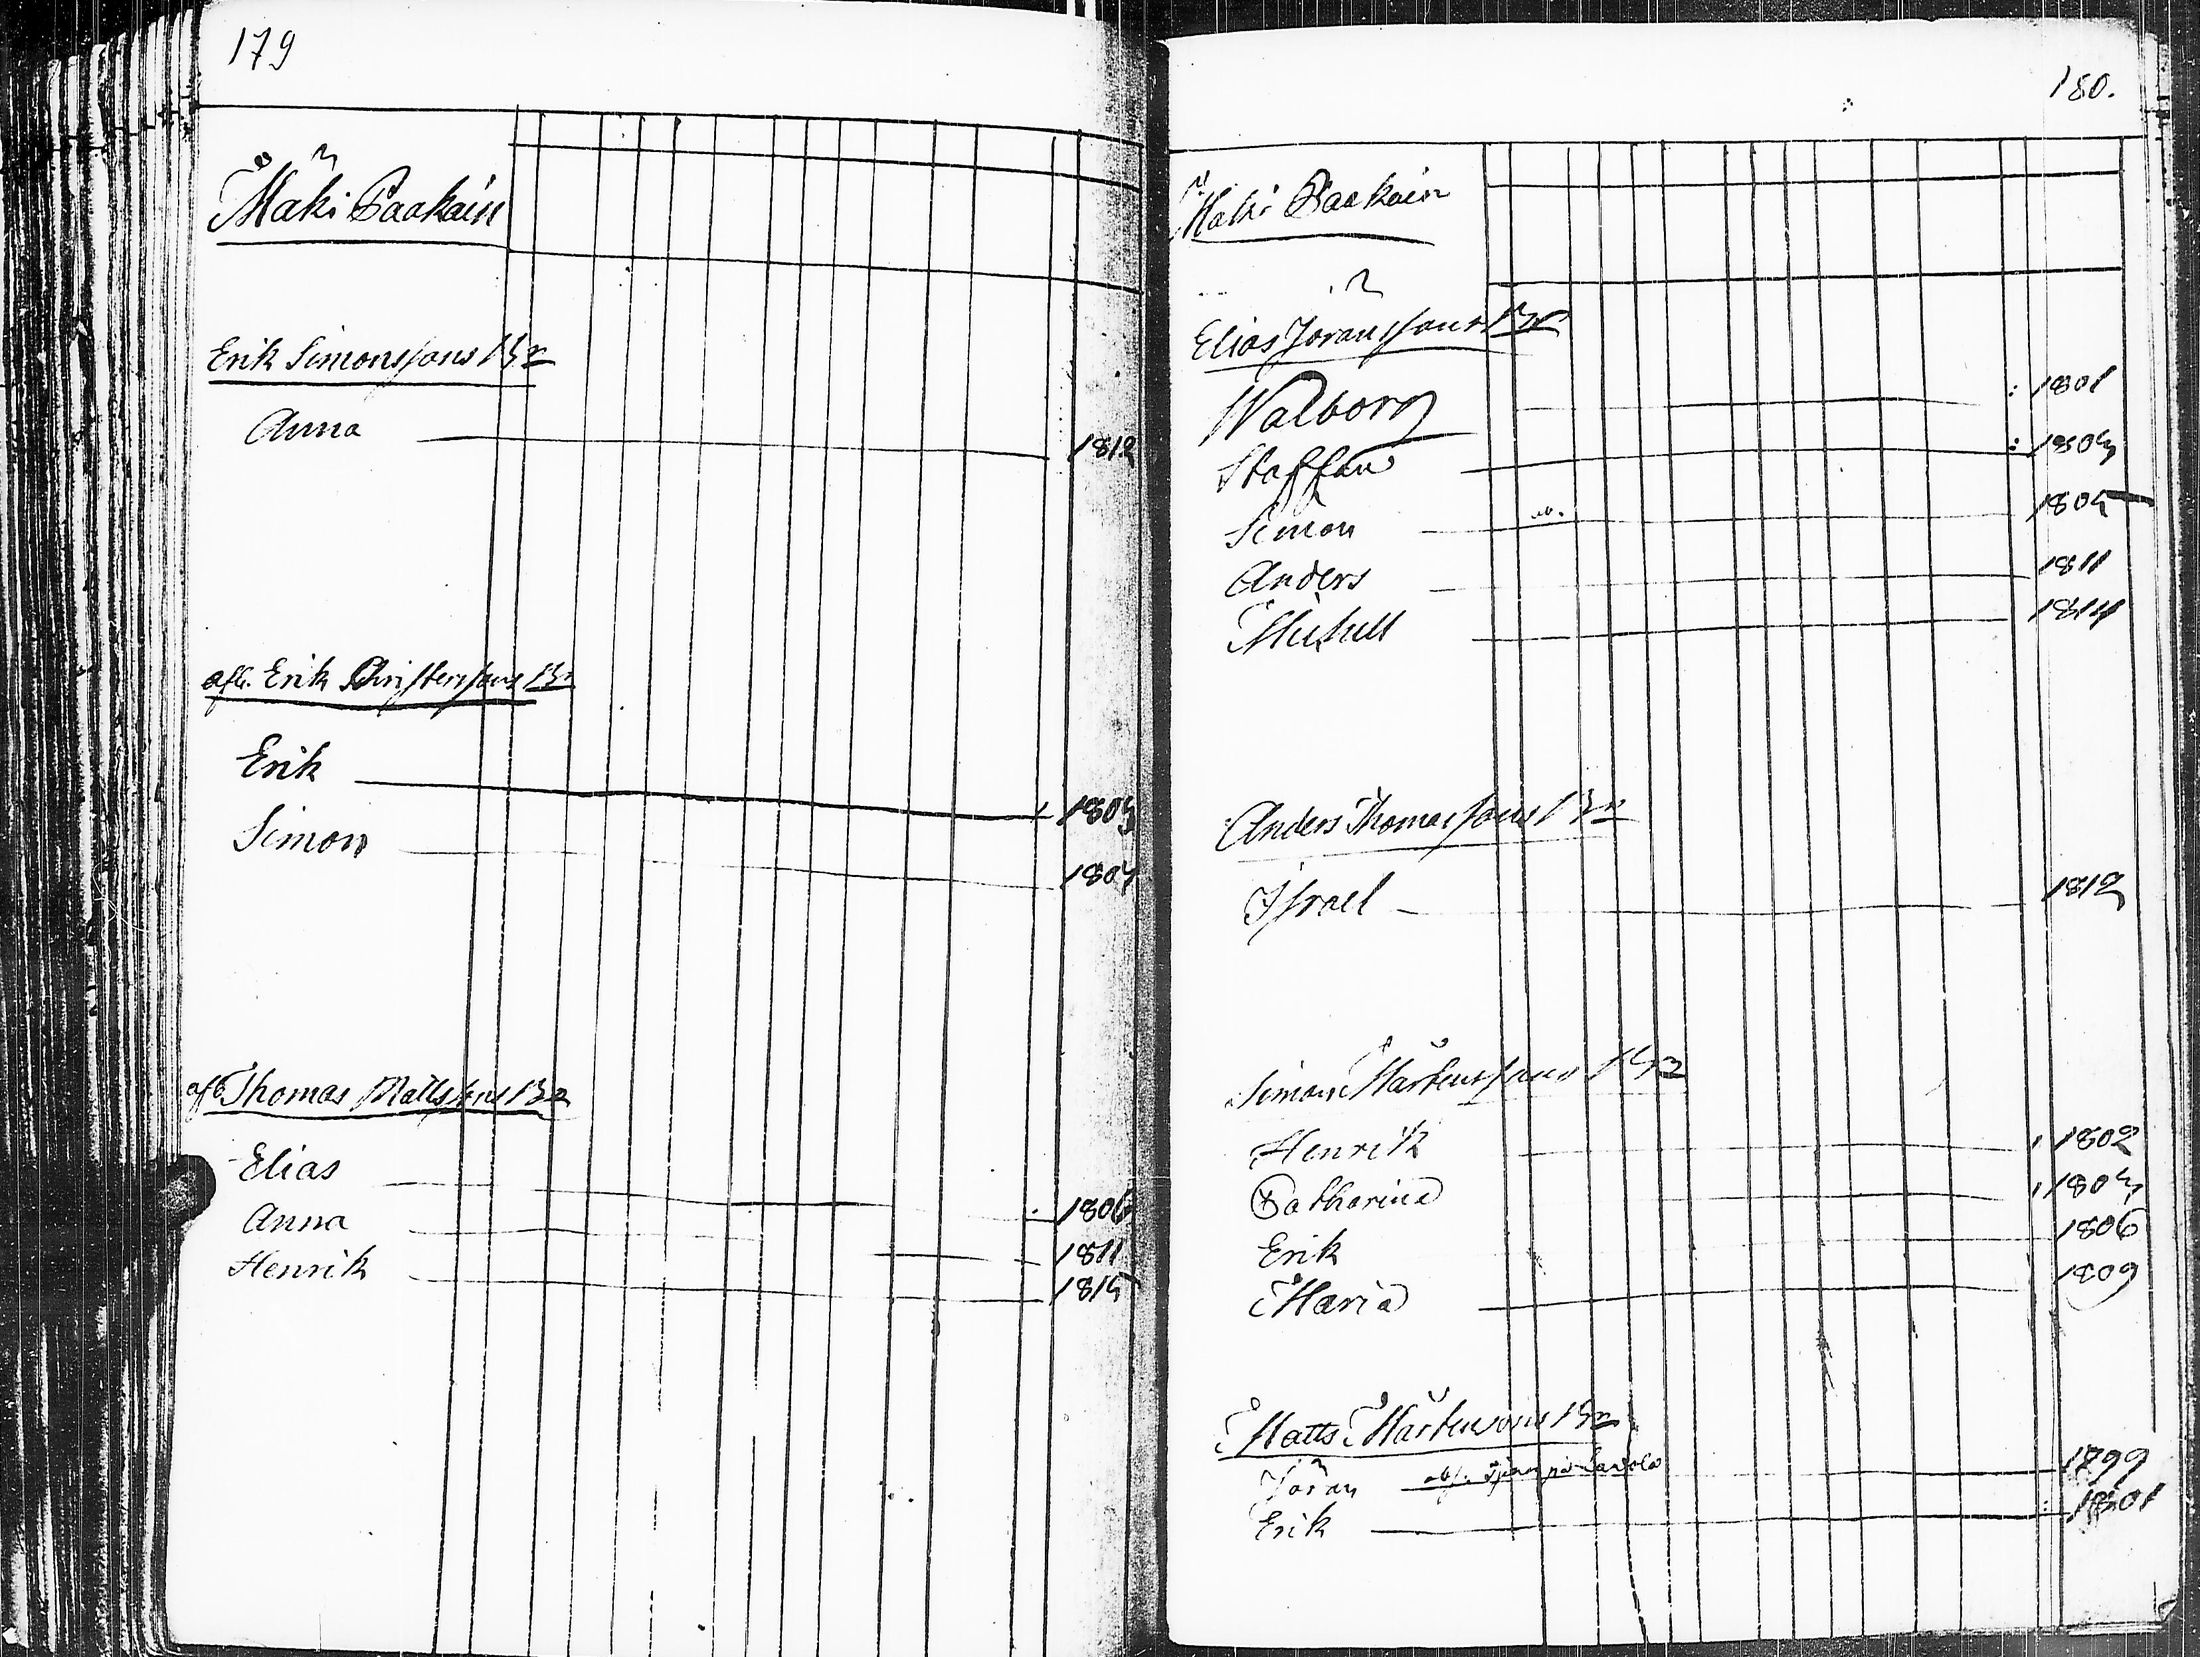 179
Mäki Paakain
Erik Simonssons Br
Anna 1812
afl. Erik Christerssons Br
Erik 1803
Simon 1807
afl Thomas Mattssons Br
Elias 1806
Anna 1811
Henrik 1815
180.
Mäki Paakain
Elias Jöranssons Br
Walborg 1801
Staffan 1803
Simon 1805
Anders 1811
Michell 1814
Anders Thomassons Br
Israel 1812
Simon Mårtenssons Br
Henrik 1802
Catharina 1804
Erik 1806
Maria 1809
Matts Mårtensons Br
Jöran 1799
Erik 1801